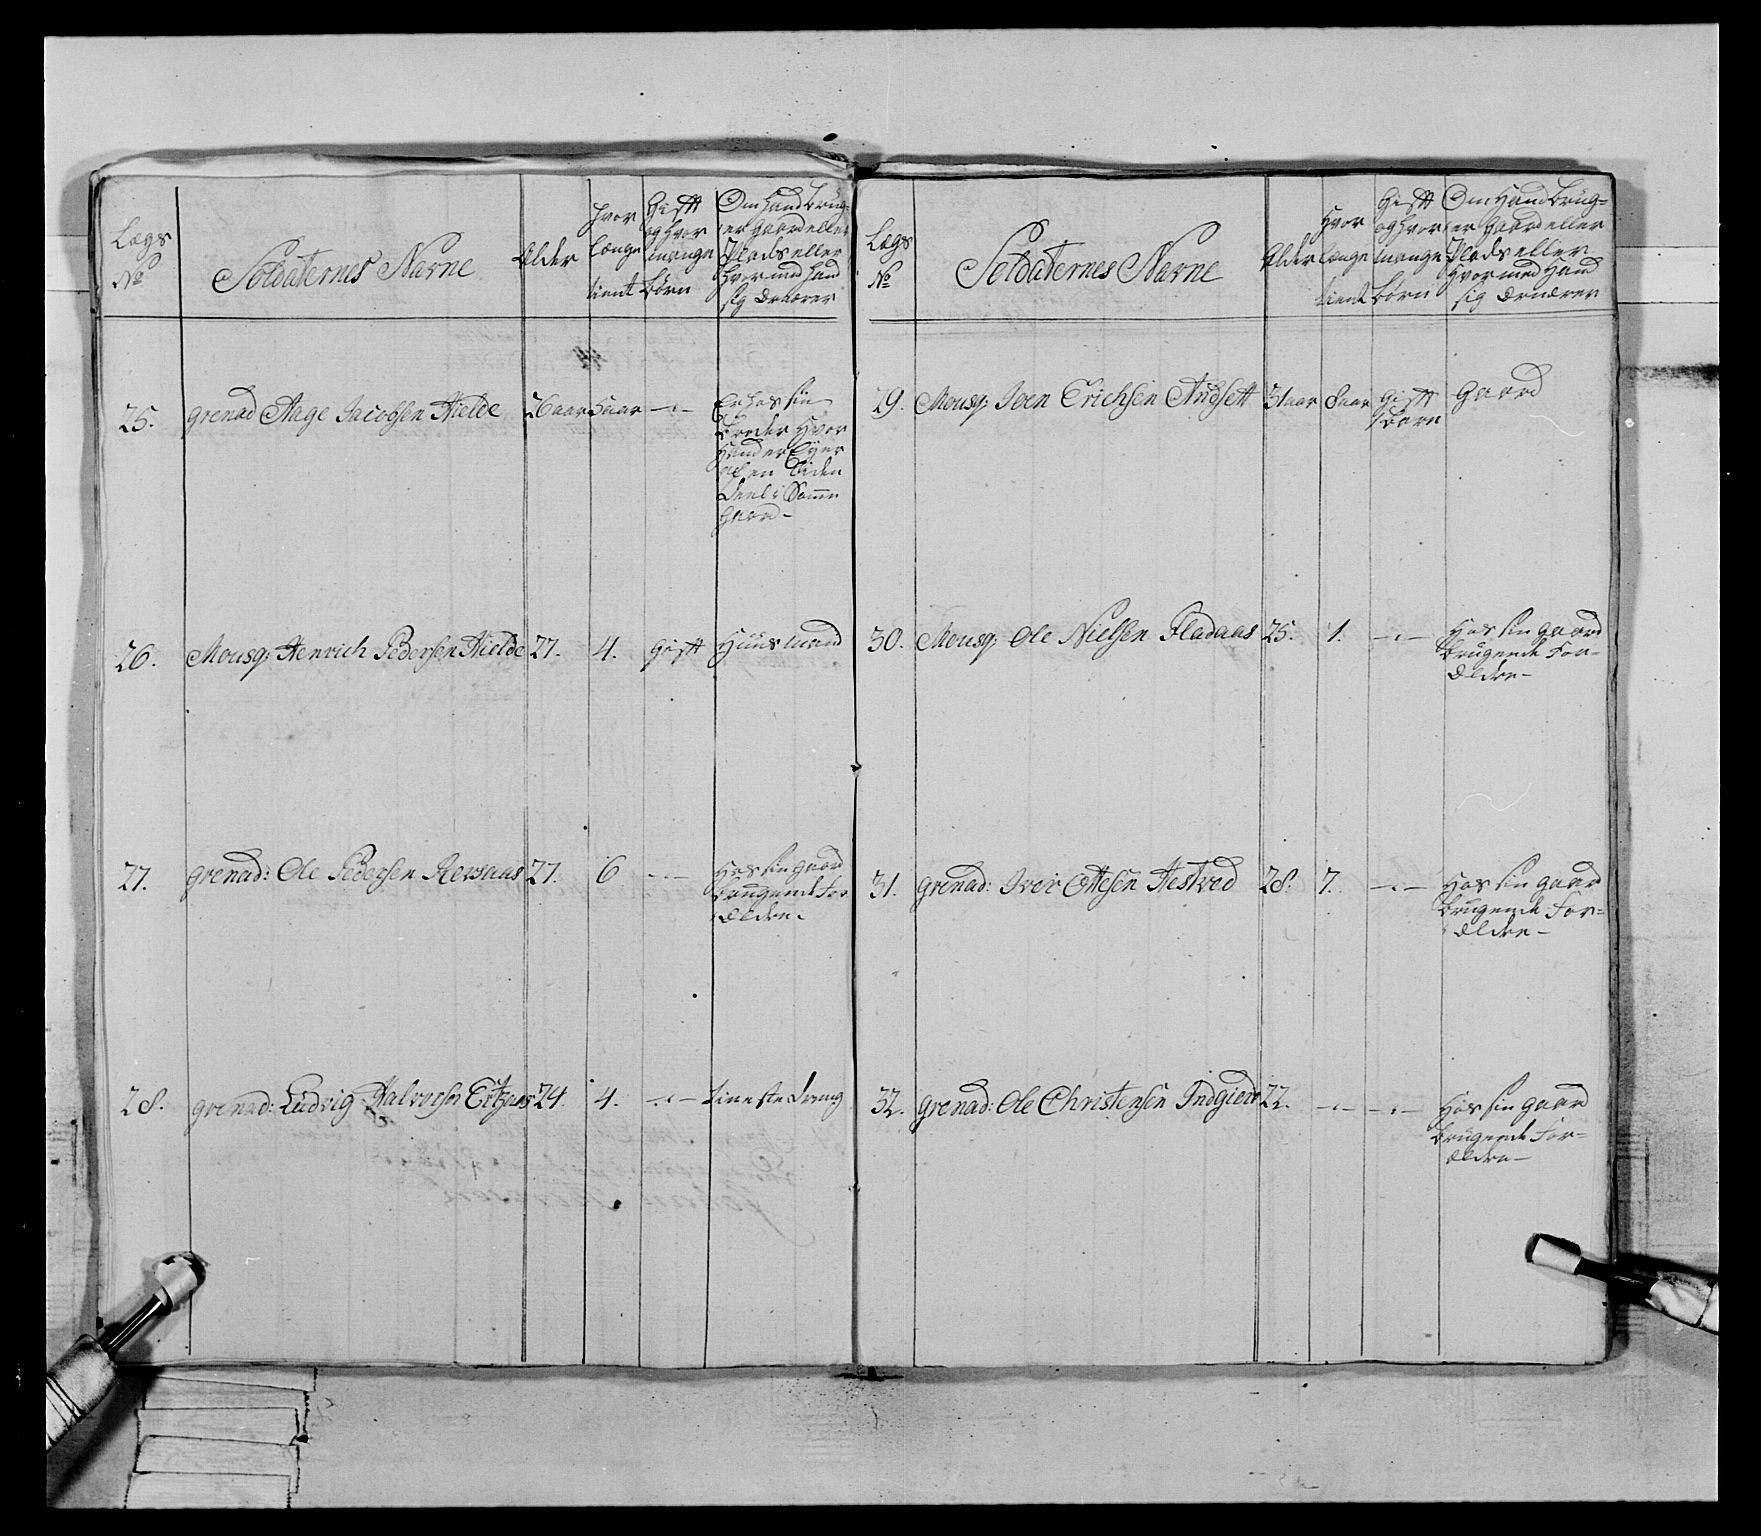 Lægs
No
Soldaternes Navne
Alder
Hvor
længe
tient
Gifft
og hvor
mange
børn
Om Hand brug=
er Gaard eller
Plads eller
Hvormed Hand
sig Ernærer
25.
grenad Aage Jacobsen Hielde
26 aar
5 aar
Er hos sin
Broder Hvor
Hand er Eyer
af en liden
Deel i Samme
Gaard
26.
Mousq; Henrich Pedersen Hielde
27.
4.
Gifft
Huusmand
27.
grenad: Ole Pedersen
27.
6
Hos sin gaard
brugende For
ældre
28.
grenad: Ludvig Halvorsen
24
4.
tieneste Dreng
Lægs
No
Soldaternes Navne
Alder
Hvor
længe
tient
Gifft
og hvor
mange
børn
Om Hand brug=
er Gaard eller
Plads eller
Hvormed Hand
sig Ernærer
29.
Mousq; Iven Erichsen Audsett
31 aar
8 aar
Gifft
1 barn
Gaard
30.
Mousq; Ole Nielsen Fladaas
25.
1.
Hos sin gaard
brugende For=
Ældre
31.
grenad: Iver Ottesen Hestved
28.
7.
Hos sin gaard
brugende For=
ældre
32.
grenad: Ole Christensen
22.
Hos sin gaard
brugende For=
ældre